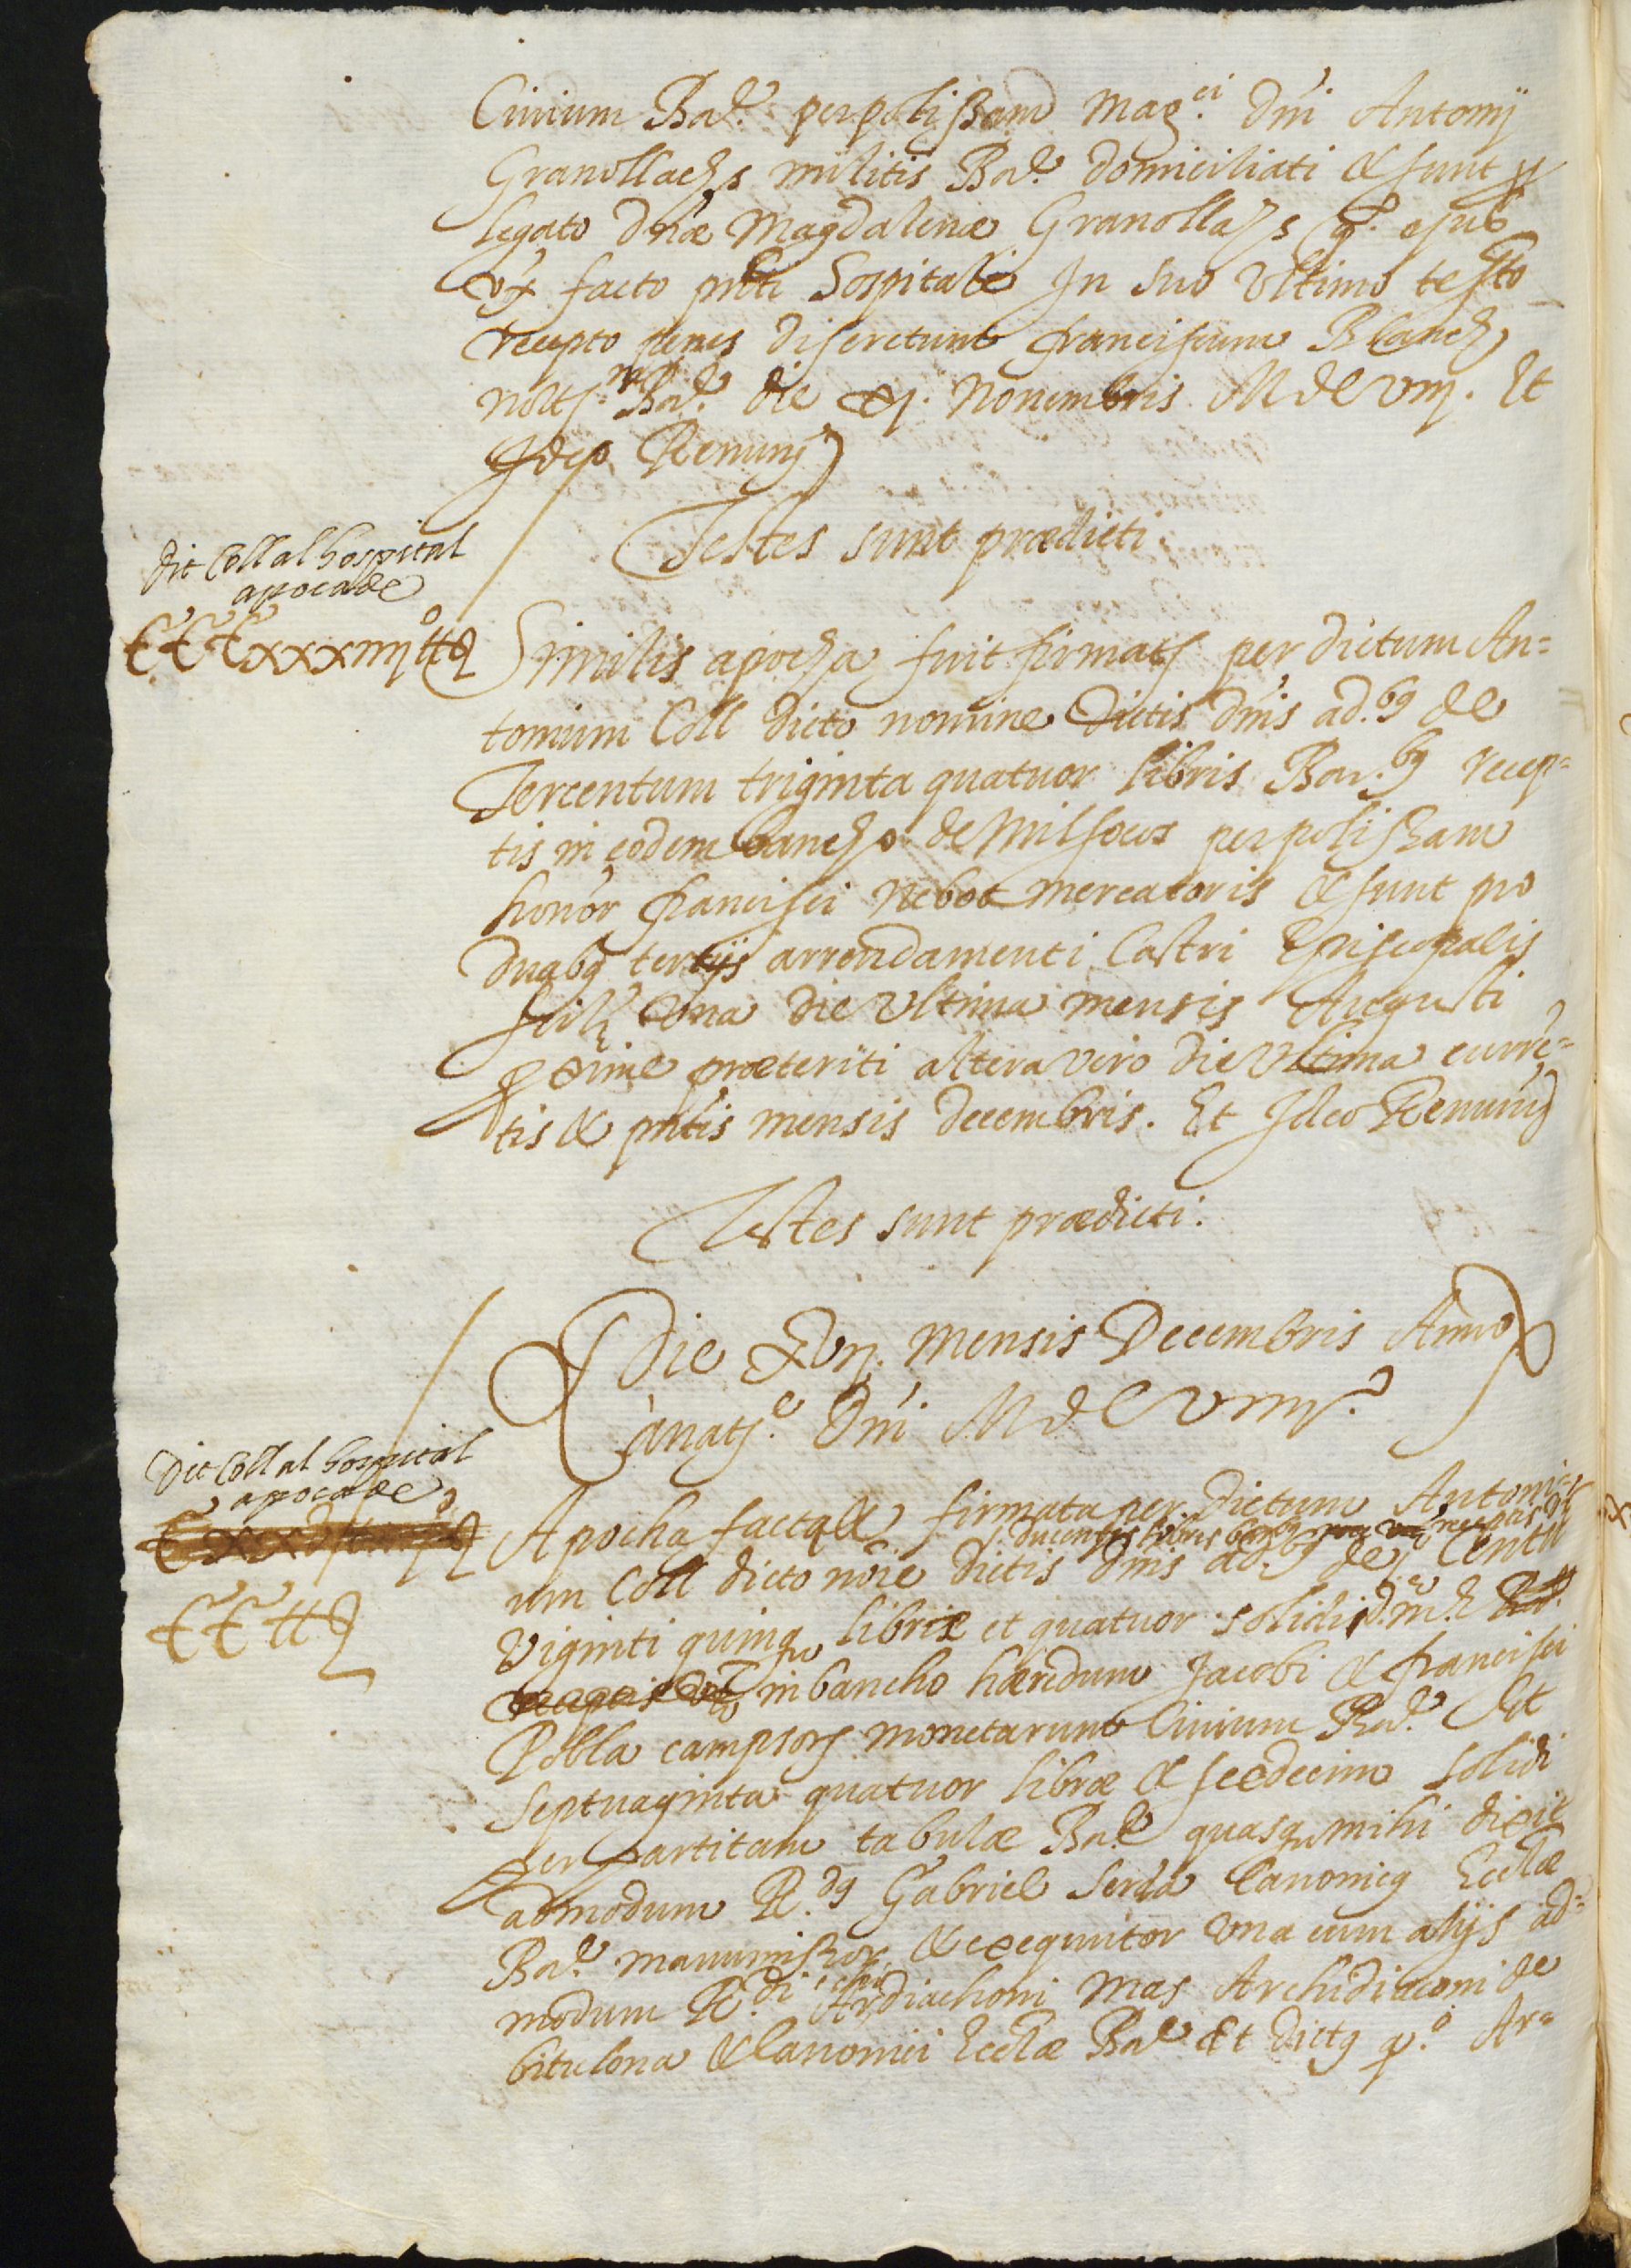 Ciuium Bar.e per polissam Mag.ci Dñi Antonij
Granollachs militis Bar.e Domiciliati & sunt pro
legato Dñæ Magdalenæ Granollachs q.º ejus
vx.r facto pñti Hospitali In suo Vltimo testto
recepto penes Discretum franciscum Blanch
nott. Bar.e Die xj. Nouembris MDCviij. Et
Ideo Renunț
Testes sunt prædicti.
Dit Coll al hospital
apoca de
CCCxxxiiij ℔
Similis apocha fuit firmatț per dictum An=
tonium Coll dicto nomine Dictis Dñis ad.bꝰ de
Tercentum triginta quatuor libris Bar.bꝰ recep=
tis in eodem bancho de Milsocos per polissam
honor francisci Nebot mercatoris & sunt pro
Duabꝰ tertijs arrendamenti Castri Episcopalis
scilt Vna die Vltima mensis Augusti
proxime præteriti altera vero die Vltima curre~=
tis & pñtis mensis Decembris. Et Ideo Renunț
Testes sunt prædicti.
Die xvij. Mensis Decembris Anno
a natț.e Dñi MDCviiij.º
Dit Coll al hospital
apoca de
CC ℔
Apocha facta & firmata per Dictum Antoni=
ducentis libris receptis
um Coll dicto nõie dictis Dñis ad.bꝰ de Centu~
Viginti quinqꝫ libris et quatuor solidis
in bancho hæredum Jacobi & francisci
Pobla campsorț monetarum Ciuium Bar.e Et
Septuaginta quatuor libræ & sexdecim solidi
per partitam tabulæ Bar.e quasqꝫ mihi dixit
admodum R.dꝰ Gabriel Serda Canonicꝰ Ecclæ
Bar.e manumissor & exequutor Vna cum alijs ad=
modum R.di Ardiachoni Mas Archidiaconi de
bitulona & Canonici Ecclæ Bar.e Et dictꝰ q.º Ar=